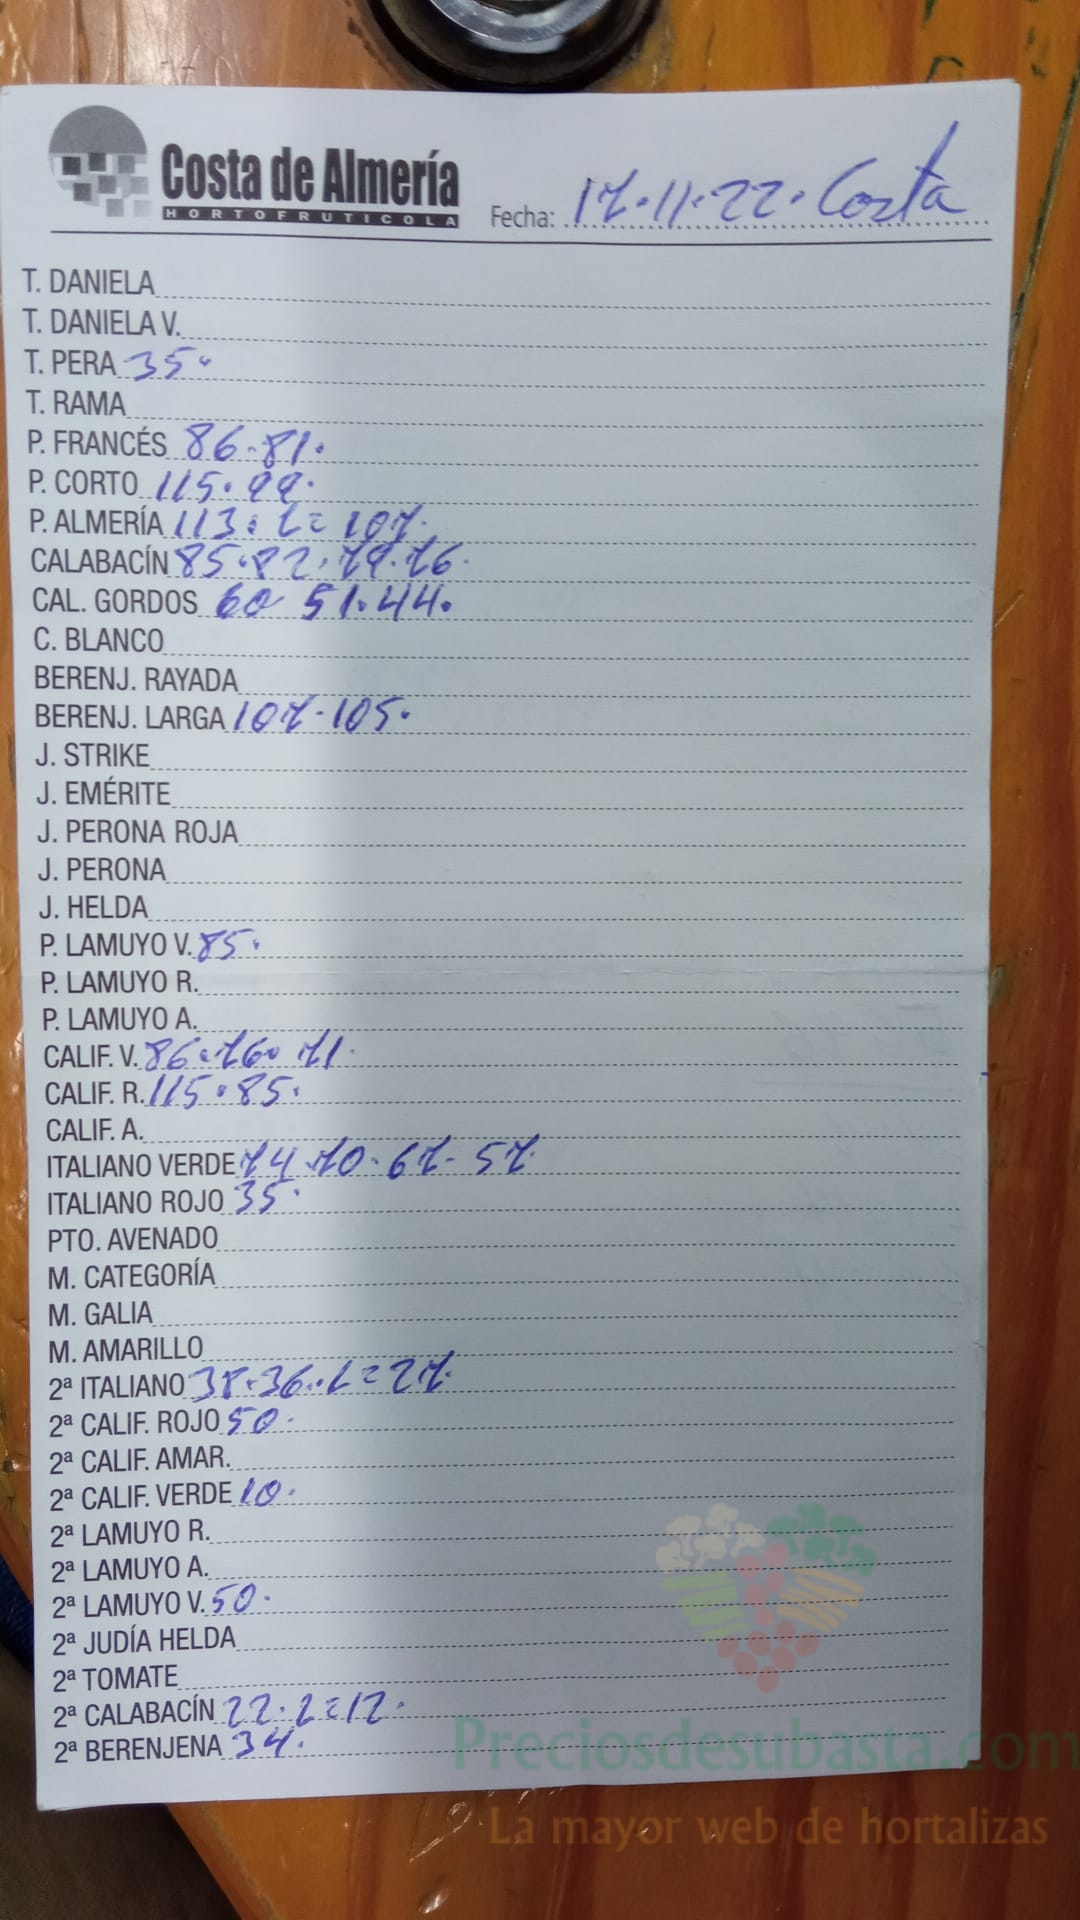 Costa de Almería
HORTOFRUTICOLA
Fecha: 17.11.22. Costa
T. DANIELA
T. DANIELA V.
T. PERA 35.
T. RAMA
P. FRANCÉS 86.81.
P. CORTO 115.99.
P. ALMERÍA 113: L=107.
CALABACÍN 85.82.79.76.
CAL. GORDOS 60 51.44.
C. BLANCO
BERENJ. RAYADA
BERENJ. LARGA 107-105.
J. STRIKE
J. EMÉRITE
J. PERONA ROJA
J. PERONA
J. HELDA
P. LAMUYO V. 85.
P. LAMUYO R.
P. LAMUYO A.
CALIF. V. 86.76.71.
CALIF. R. 115.85.
CALIF. A.
ITALIANO VERDE 74.70.67-57.
ITALIANO ROJO 35.
PTO. AVENADO
M. CATEGORÍA
M. GALIA
M. AMARILLO
2ª ITALIANO 38.36..L=27.
2ª CALIF. ROJO 50.
2ª CALIF. AMAR.
2ª CALIF. VERDE 10.
2ª LAMUYO R.
2ª LAMUYO A.
2ª LAMUYO V. 50.
2ª JUDÍA HELDA
2ª TOMATE
2ª CALABACÍN 22.L=12.
2ª BERENJENA 34.
Preciosdesubasta.com
La mayor web de hortalizas